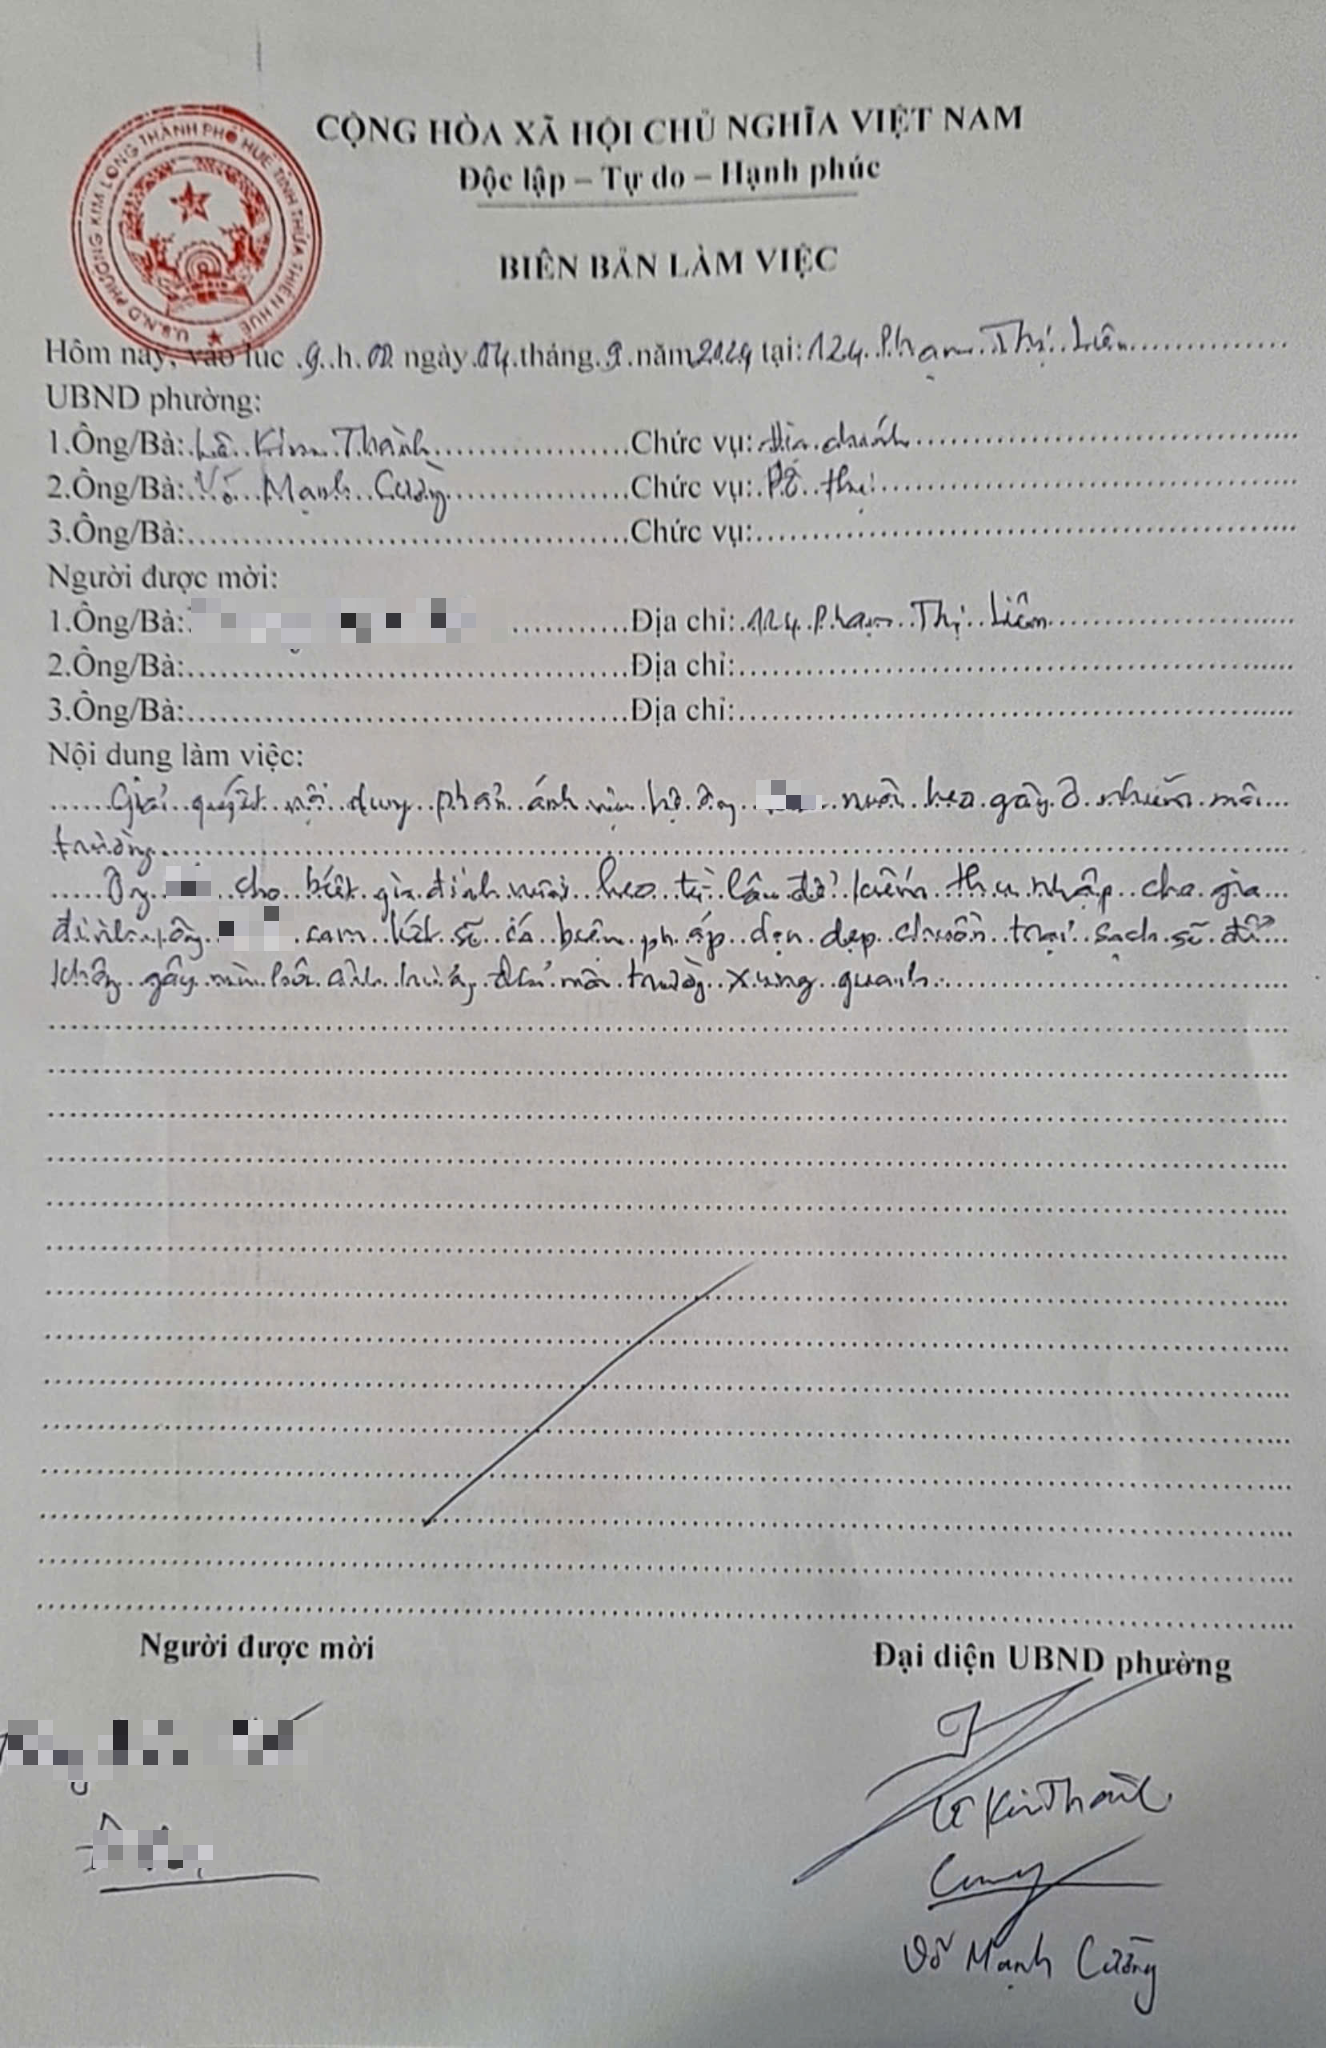 U.B.N.D PHƯỜNG KIM LONG THÀNH PHỐ HUẾ TỈNH THỪA THIÊN HUẾ
CỘNG HÒA XÃ HỘI CHỦ NGHĨA VIỆT NAM
Độc lập – Tự do – Hạnh phúc
BIÊN BẢN LÀM VIỆC
Hôm nay, vào lúc 9 h 00 ngày 04 tháng 9 năm 2024 tại: 124 Phạm Thị Liên
UBND phường:
1.Ông/Bà: Lê Kim Thành Chức vụ: Địa chính
2.Ông/Bà: Võ Mạnh Cường Chức vụ: Đô thị
3.Ông/Bà: Chức vụ:
Người được mời:
1.Ông/Bà: Địa chỉ: 124 Phạm Thị Liên
2.Ông/Bà: Địa chỉ:
3.Ông/Bà: Địa chỉ:
Nội dung làm việc:
Giải quyết nội dung phản ánh hộ ông nuôi heo gây ô nhiễm môi
trường
Ông cho biết gia đình nuôi heo từ lâu để kiếm thu nhập cho gia
đình, ông cam kết sẽ có biện pháp dọn dẹp chuồn trại sạch sẽ để
không gây mùi hôi ảnh hưởng đến môi trường xung quanh.
Người được mời Đại diện UBND phường
Lê Kim Thành
Cường
Võ Mạnh Cường